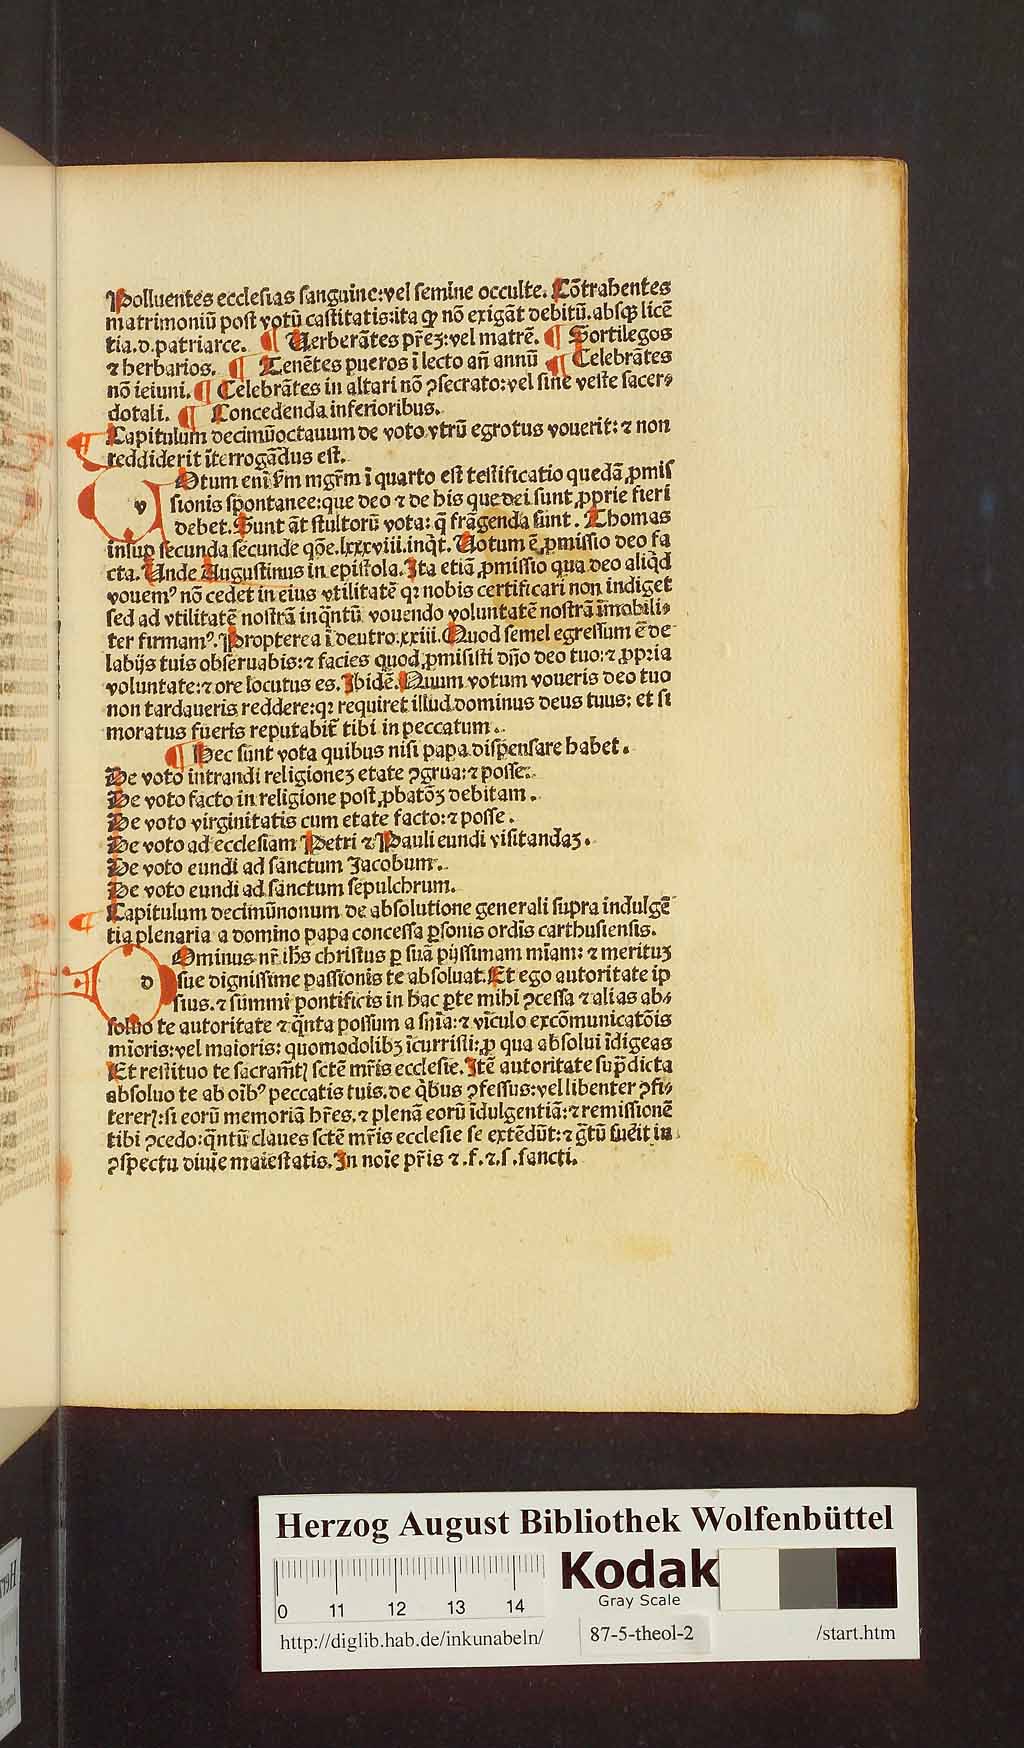 Polluentes ecclesias sanguine: vel semine occulte. Cōtrahentes
matrimoniū post votū castitatis: ita ꝙ nō exigāt debitū. absqꝫ licē
tia. d. patriarce. ¶ Uerberātes pr̄eꝫ: vel matrē. ¶ Sortilegos
⁊ herbarios. ¶ Tenētes pueros ī lecto an̄ annū ¶ Celebrātes
nō ieiuni. ¶ Celebrātes in altari nō ꝯsecrato: vel sine veste sacer⸗
dotali. ¶ Concedenda inferioribus.
¶ Capitulum decimūoctauum de voto vtrū egrotus vouerit: ⁊ non
reddiderit īterrogādus est.
v Otum enī ẜm mgr̄m ī quarto est testificatio quedā ꝓmis
sionis spontanee: que deo ⁊ de his que dei sunt ꝓprie fieri
debet. Sunt āt stultorū vota: q̄ frāgenda sunt. Thomas
insup secunda secunde qōe. lxxxviii. inq̇t. Uotum ē ꝓmissio deo fa
cta. Unde Augustinus in epistola. Ita etiā ꝓmissio qua deo aliq̇d
vouemꝰ nō cedet in eius vtilitatē qꝛ nobis certificari non indiget
sed ad vtilitatē nostrā inq̄ntū vouendo voluntatē nostrā īmobili⸗
ter firmamꝰ. Propterea ī deutro. xxiii. Quod semel egressum ē de
labijs tuis obseruabis: ⁊ facies quod ꝓmisisti dn̄o deo tuo: ⁊ ꝓpꝛia
voluntate: ⁊ ore locutus es. Ibidē. Quum votum voueris deo tuo
non tardaueris reddere: qꝛ requiret illud dominus deus tuus: et si
moratus fueris reputabit̄ tibi in peccatum.
¶ Hec sunt vota quibus nisi papa dispensare habet.
De voto intrandi religioneꝫ etate ꝯgrua: ⁊ posse.
De voto facto in religione post ꝓbatōꝫ debitam.
De voto virginitatis cum etate facto: ⁊ posse.
De voto ad ecclesiam Petri ⁊ Pauli eundi visitandaꝫ.
De voto eundi ad sanctum Jacobum.
De voto eundi ad sanctum sepulchrum.
¶ Capitulum decimūnonum de absolutione generali supra indulgē
tia plenaria a domino papa concessa ꝑsonis ordīs carthusiensis.
d Ominus nr̄ ih̄s christus ꝑ suā pijssimam mīam: ⁊ merituꝫ
sue dignissime passionis te absoluat. Et ego autoritate ip
sius. ⁊ summi pontificis in hac ꝑte mihi ꝯcessa ⁊ alias ab⸗
soluo te autoritate ⁊ q̄nta possum a sn̄ia: ⁊ vīculo excōmunicatōis
mīoris: vel maioris: quomodolibꝫ īcurristi: ꝓ qua absolui īdigeas
Et restituo te sacram̄tꝭ sctē mr̄is ecclesie. Itē autoritate supͣdicta
absoluo te ab oībꝰ peccatis tuis. de q̇bus ꝯfessus: vel libenter ꝯfi⸗
tererꝭ: si eorū memoriā hr̄es. ⁊ plenā eorū īdulgentiā: ⁊ remissionē
tibi ꝯcedo: q̄ntū claues sctē mr̄is ecclesie se extēdūt: ⁊ g̈tū fuēit in
ꝯspectu diuīe maiestatis. In noīe pr̄is ⁊. f. ⁊. s. sancti.
Herzog August Bibliothek Wolfenbüttel
Kodak
Gray Scale
0 11 12 13 14
http://diglib.hab.de/inkunabeln/ 87-5-theol-2 /start.htm